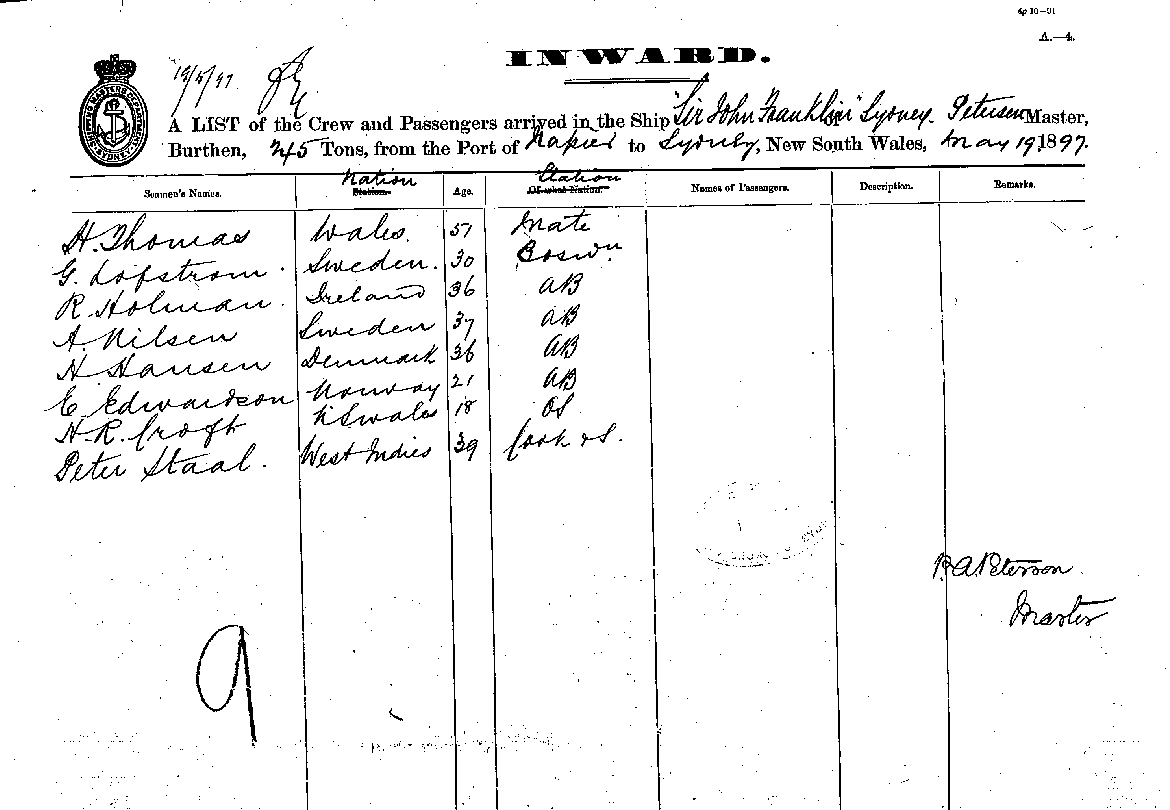 4p 10—91
A.—4.
INWARD.
19/5/97
A LIST of the Crew and Passengers arrived in the Ship "Sir John Franklin" Sydney. Peterson Master,
Burthen, 245 Tons, from the Port of Napier to Sydney, New South Wales, May 19, 1897.
Seamen's Names. Nation Station. Age. Station Of what Nation. Names of Passengers. Description. Remarks.
H. Thomas Wales. 57 Mate
G. Lofstrom. Sweden. 30 Boswn
R Holman. Ireland 36 AB
A. Nilsen Sweden 37 AB
N Hansen Denmark 36 AB
E Edwardson Norway 21 AB
H. R. Croft N S Wales 18 OS
Peter Staal. West Indies 39 Cook & S.
P. A. Peterson.
Master
9